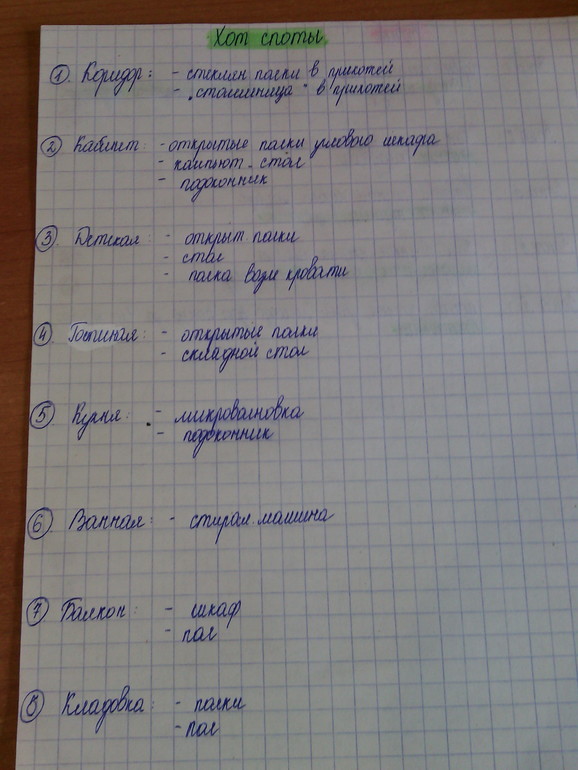 Хот споты
1 Коридор: - стеклян полки в прихожей
- "столешница" в прихожей
2 Кабинет: - открытые полки углового шкафа
- компьют. стол
- подоконник
3 Детская: - открыт полки
- стол
- полка возле кровати
4 Гостиная: - открытые полки
- складной стол
5 Кухня: - микроволновка
- подоконник
6 Ванная: - стирал. машина
7 Балкон: - шкаф
- пол
8 Кладовка: - полки
- пол